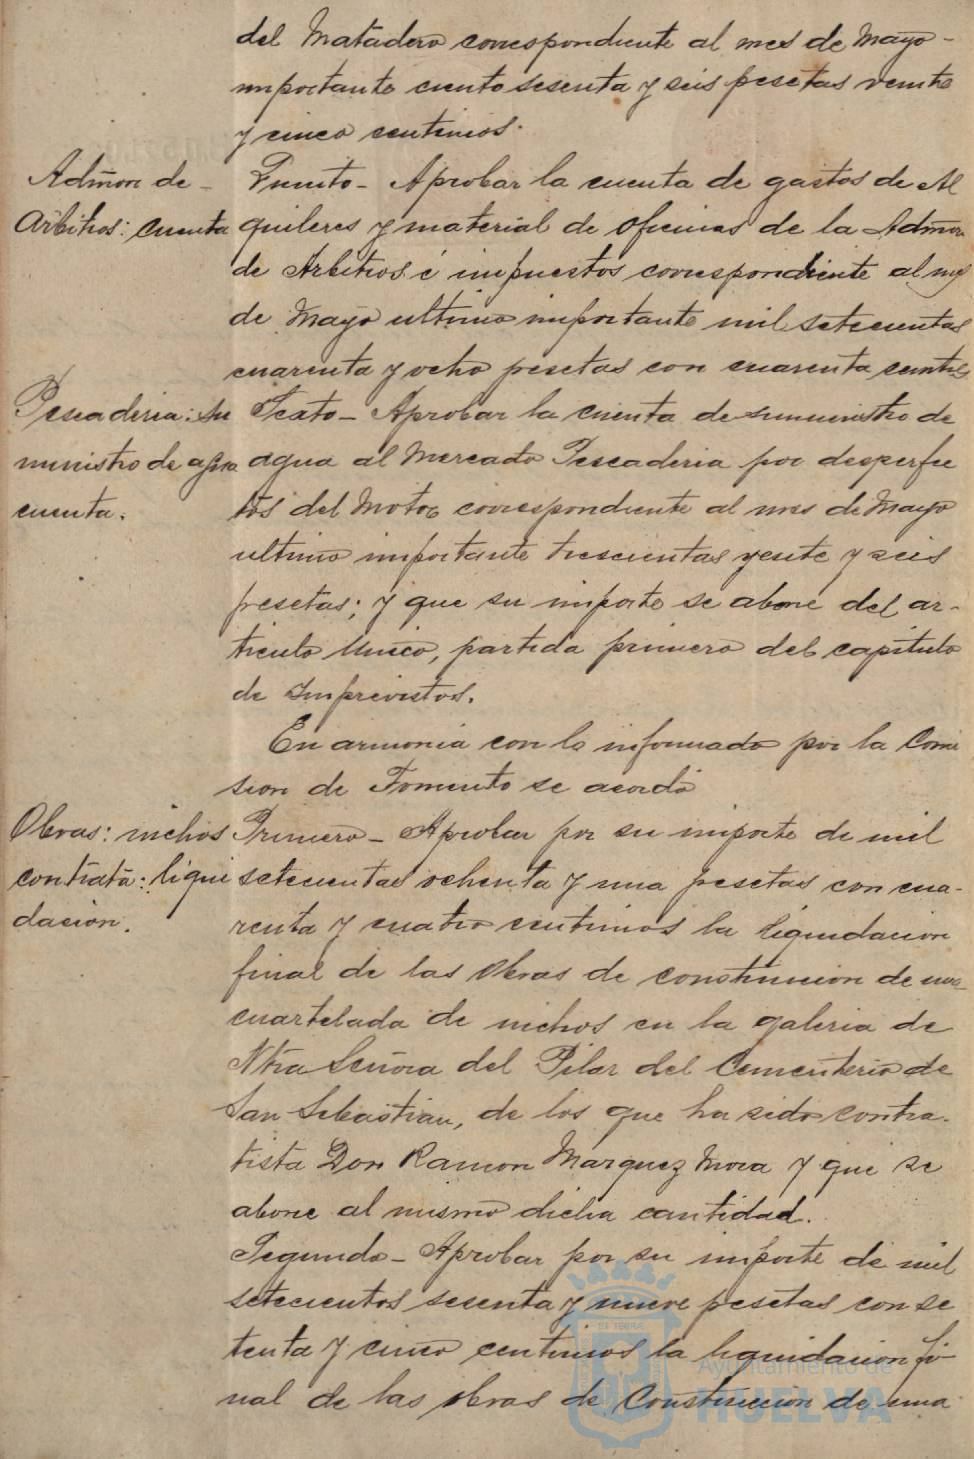 del Matadero correspondiente al mes de Mayo -
importante ciento sesenta y seis pesetas veinte
y cinco centimos.
Admon de -
Arbitrios: cuenta
Quinto - Aprobar la cuenta de gastos de Al
quileres y material de oficinas de la Admon
de Arbitrios é impuestos correspondiente al mes
de Mayo ultimo importante mil setecientas
cuarenta y ocho pesetas con cuarenta centms
Pescaderia: su
ministro de agua
cuenta.
Sexto - Aprobar la cuenta de suministro de
agua al Mercado Pescaderia por desperfec
tos del Motor correspondiente al mes de Mayo
ultimo importante trescientas veinte y seis
pesetas; y que su importe se abone del ar-
ticulo Unico, partida primera del capitulo
de Imprevistos.
En armonia con lo informado por la Comi
sion de Fomento se acordó
Obras: nichos
contrata: liqui
dacion.
Primero - Aprobar por su importe de mil
setecientas ochenta y una pesetas con cua-
renta y cuatro centimos la liquidacion
final de las obras de construccion de una
cuartelada de nichos en la galeria de
Ntra Señora del Pilar del Cementerio de
San Sebastian, de los que ha sido contra-
tista Don Ramon Marquez Mora y que se
abone al mismo dicha cantidad.
Segundo - Aprobar por su importe de mil
setecientos sesenta y nueve pesetas con se
tenta y cinco centimos la liquidacion fi-
nal de las obras de Construccion de una
Ayuntamiento de
HUELVA